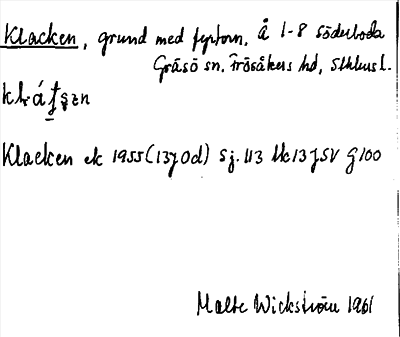 Klacken, grund med fyrtorn, å 1-8 Söderboda
Gräsö sn, Frösåkers hd, Sthlms l.
Klacken ek 1955 (13J0d) Sj. 113 13J SV G100
Malte Wickström 1961